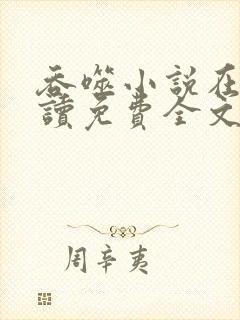 吞噬小説在
讀免費全文
周辛夷